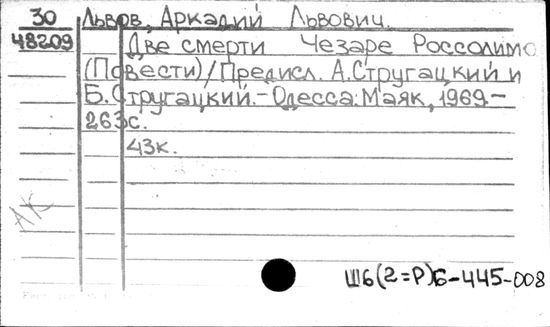 30 Львов, Аркадий Львович.
48209 Две смерти Чезаре Россолимо
(Повести)/Предисл. А.Стругацкий и
Б.Стругацкий.-Одесса: Маяк, 1969.-
263с.
43к.
АК
Ш6(2=Р)Б-445-008